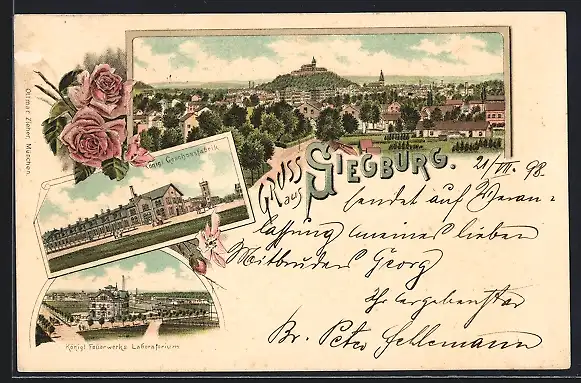 Ottmar Zieher, München.
Königl. Geschossfabrik
GRUSS
aus
SIEGBURG.
21/VII. 98.
sendet auf Veran-
lassung meines lieben
Mitbruders Georg
Ihr ergebenster
Br. Peter
Königl. Feuerwerks Laboratorium